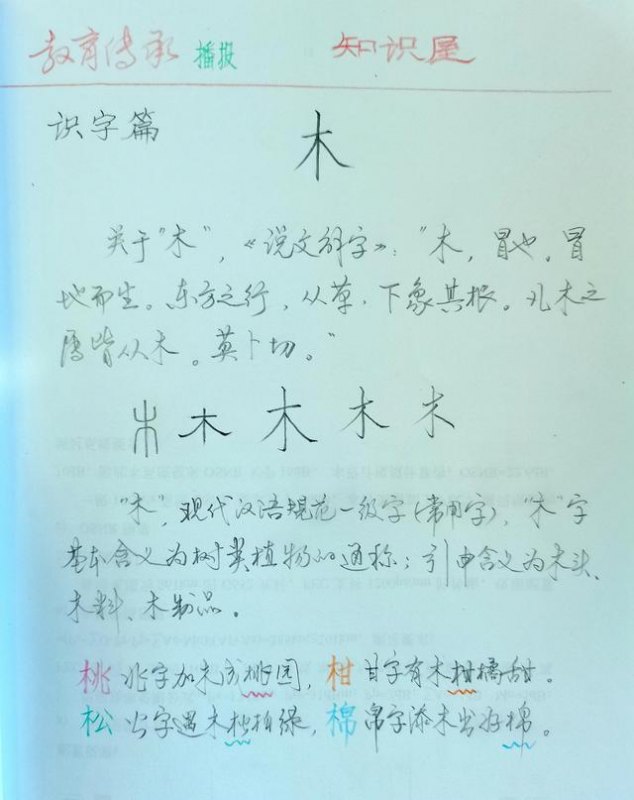 教育传承 播报 知识屋
识字篇 木
关于"木",《说文解字》:"木,冒也。冒
地而生。东方之行,从草,下象其根。凡木之
属皆从木。莫卜切。"
木 木 木 木 木
"木",现代汉语规范一级字(常用字),"木"字
基本含义为树类植物的通称;引申含义为木头、
木料、木制品。
桃 兆字加木成桃园,柑 甘字有木柑橘甜。
松 公字遇木松柏绿,棉 帛字添木出好棉。